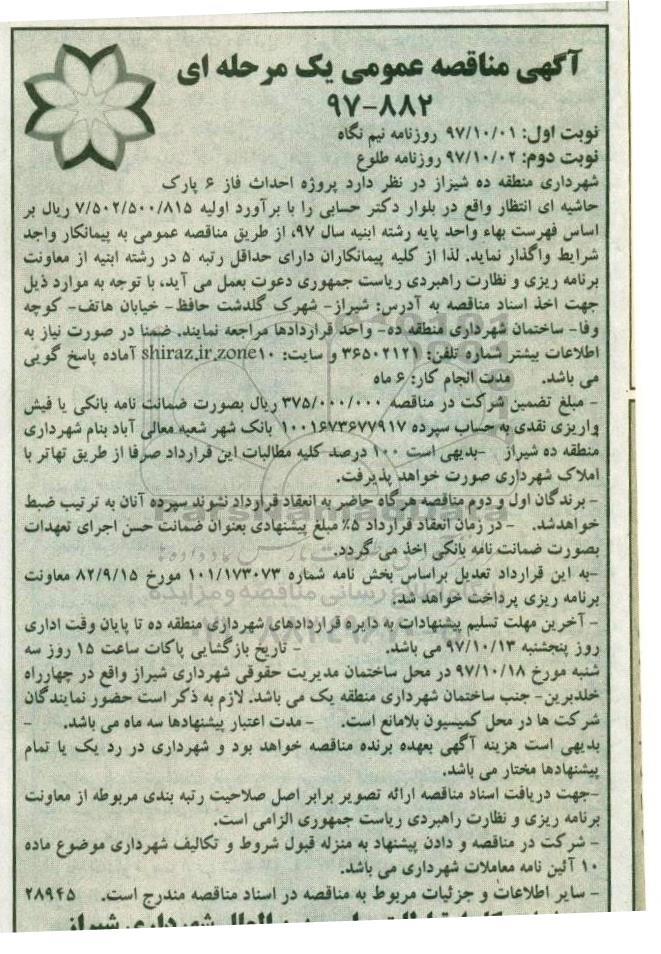 آگهی مناقصه عمومی یک مرحله ای
۹۷-۸۸۲
نوبت اول: ۹۷/۱۰/۰۱ روزنامه نیم نگاه
نوبت دوم: ۹۷/۱۰/۰۲ روزنامه طلوع
شهرداری منطقه ده شیراز در نظر دارد پروژه احداث فاز ۶ پارک
حاشیه ای انتظار واقع در بلوار دکتر حسابی را با برآورد اولیه ۷/۵۰۲/۵۰۰/۸۱۵ ریال بر
اساس فهرست بهاء واحد پایه رشته ابنیه سال ۹۷، از طریق مناقصه عمومی به پیمانکار واجد
شرایط واگذار نماید. لذا از کلیه پیمانکاران دارای حداقل رتبه ۵ در رشته ابنیه از معاونت
برنامه ریزی و نظارت راهبردی ریاست جمهوری دعوت بعمل می آید، با توجه به موارد ذیل
جهت اخذ اسناد مناقصه به آدرس: شیراز- شهرک گلدشت حافظ- خیابان هاتف- کوچه
وفا- ساختمان شهرداری منطقه ده- واحد قراردادها مراجعه نمایند. ضمنا در صورت نیاز به
اطلاعات بیشتر شماره تلفن: ۳۶۵۰۲۱۲۱ و سایت: shiraz.ir.zone۱۰ آماده پاسخ گویی
می باشد. مدت انجام کار: ۶ ماه
- مبلغ تضمین شرکت در مناقصه ۳۷۵/۰۰۰/۰۰۰ ریال بصورت ضمانت نامه بانکی یا فیش
واریزی نقدی به حساب سپرده ۱۰۰۱۶۷۳۶۷۷۹۱۷ بانک شهر شعبه معالی آباد بنام شهرداری
منطقه ده شیراز -بدیهی است ۱۰۰ درصد کلیه مطالبات این قرارداد صرفا از طریق تهاتر با
املاک شهرداری صورت خواهد پذیرفت.
- برندگان اول و دوم مناقصه هرگاه حاضر به انعقاد قرارداد نشوند سپرده آنان به ترتیب ضبط
خواهدشد. - در زمان انعقاد قرارداد ۵٪ مبلغ پیشنهادی بعنوان ضمانت حسن اجرای تعهدات
بصورت ضمانت نامه بانکی اخذ می گردد.
-به این قرارداد تعدیل براساس بخش نامه شماره ۱۰۱/۱۷۳۰۷۳ مورخ ۸۲/۹/۱۵ معاونت
برنامه ریزی پرداخت خواهد شد.
- آخرین مهلت تسلیم پیشنهادات به دایره قراردادهای شهرداری منطقه ده تا پایان وقت اداری
روز پنجشنبه ۹۷/۱۰/۱۳ می باشد. - تاریخ بازگشایی پاکات ساعت ۱۵ روز سه
شنبه مورخ ۹۷/۱۰/۱۸ در محل ساختمان مدیریت حقوقی شهرداری شیراز واقع در چهارراه
خلدبرین- جنب ساختمان شهرداری منطقه یک می باشد. لازم به ذکر است حضور نمایندگان
شرکت ها در محل کمیسیون بلامانع است. - مدت اعتبار پیشنهادها سه ماه می باشد. -
بدیهی است هزینه آگهی بعهده برنده مناقصه خواهد بود و شهرداری در رد یک یا تمام
پیشنهادها مختار می باشد.
-جهت دریافت اسناد مناقصه ارائه تصویر برابر اصل صلاحیت رتبه بندی مربوطه از معاونت
برنامه ریزی و نظارت راهبردی ریاست جمهوری الزامی است.
- شرکت در مناقصه و دادن پیشنهاد به منزله قبول شروط و تکالیف شهرداری موضوع ماده
۱۰ آئین نامه معاملات شهرداری می باشد.
- سایر اطلاعات و جزئیات مربوط به مناقصه در اسناد مناقصه مندرج است. ۲۸۹۴۵
شهرداری شیراز